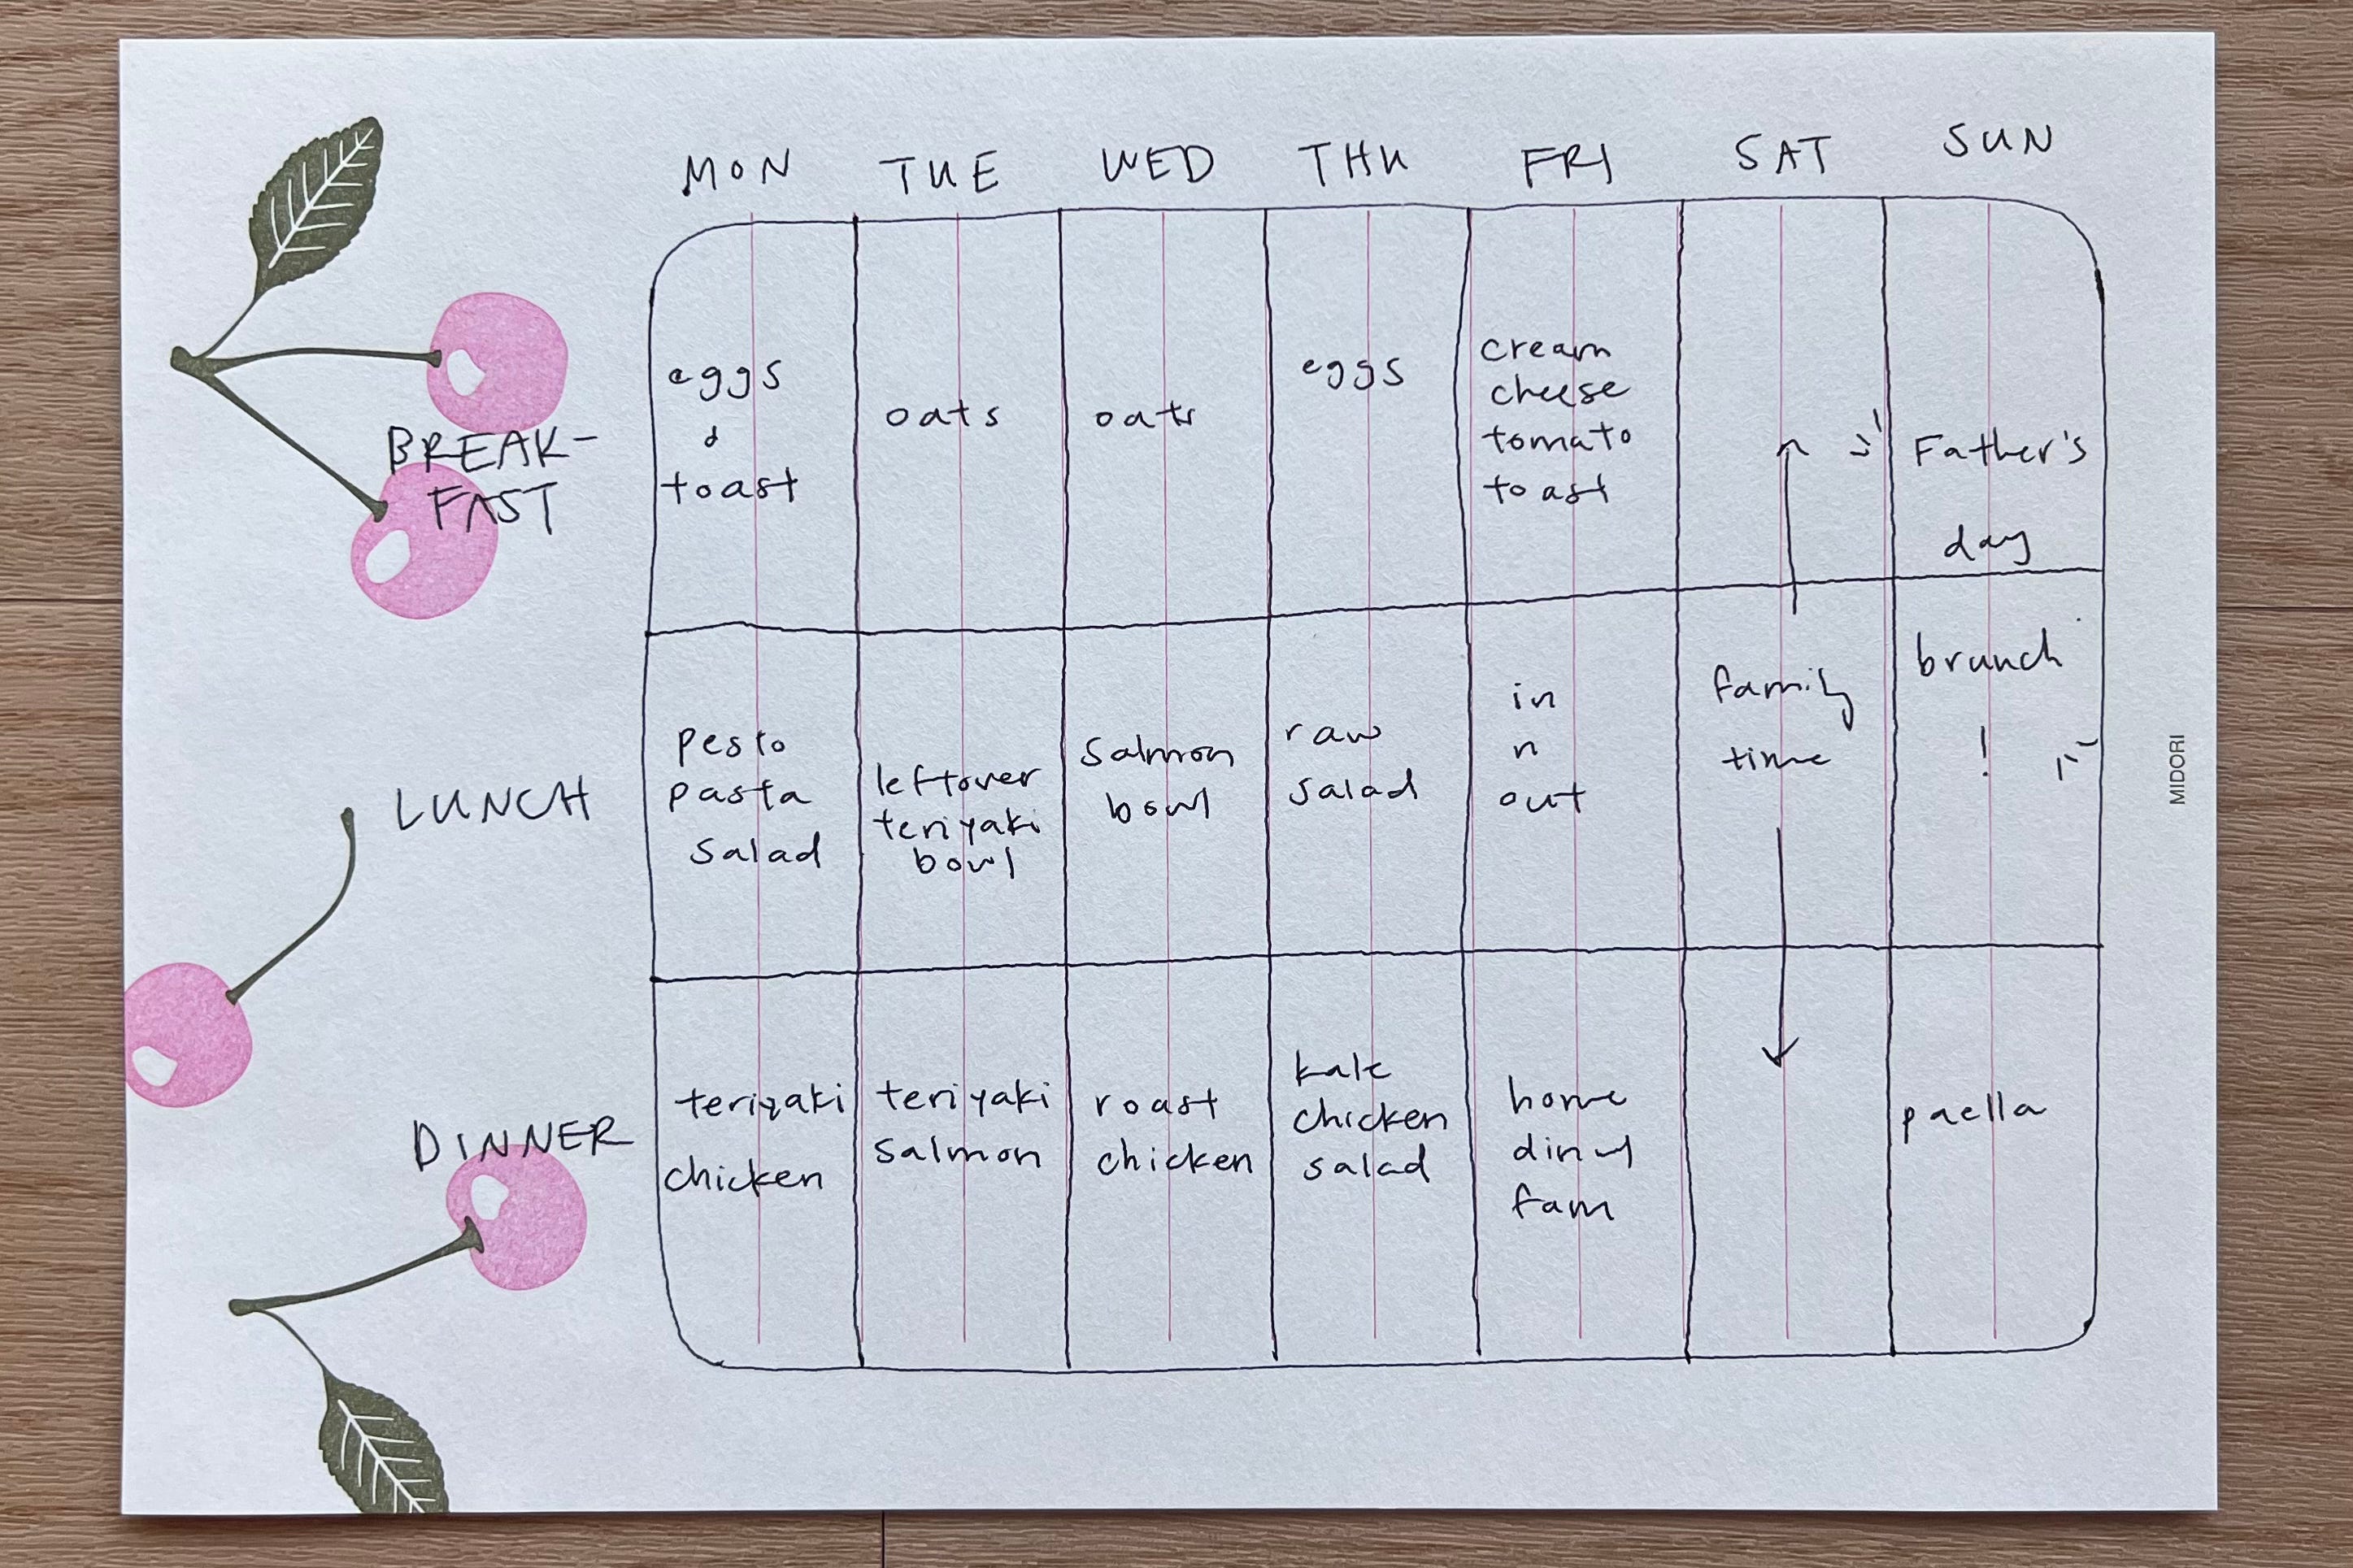 MON TUE WED THU FRI SAT SUN
BREAK-
FAST
eggs
&
toast
oats
oats
eggs
cream
cheese
tomato
toast
Father's
day
brunch
!
LUNCH
pesto
pasta
salad
leftover
teriyaki
bowl
salmon
bowl
raw
salad
in
n
out
family
time
DINNER
teriyaki
chicken
teriyaki
salmon
roast
chicken
kale
chicken
salad
home
din w/
fam
paella
MIDORI